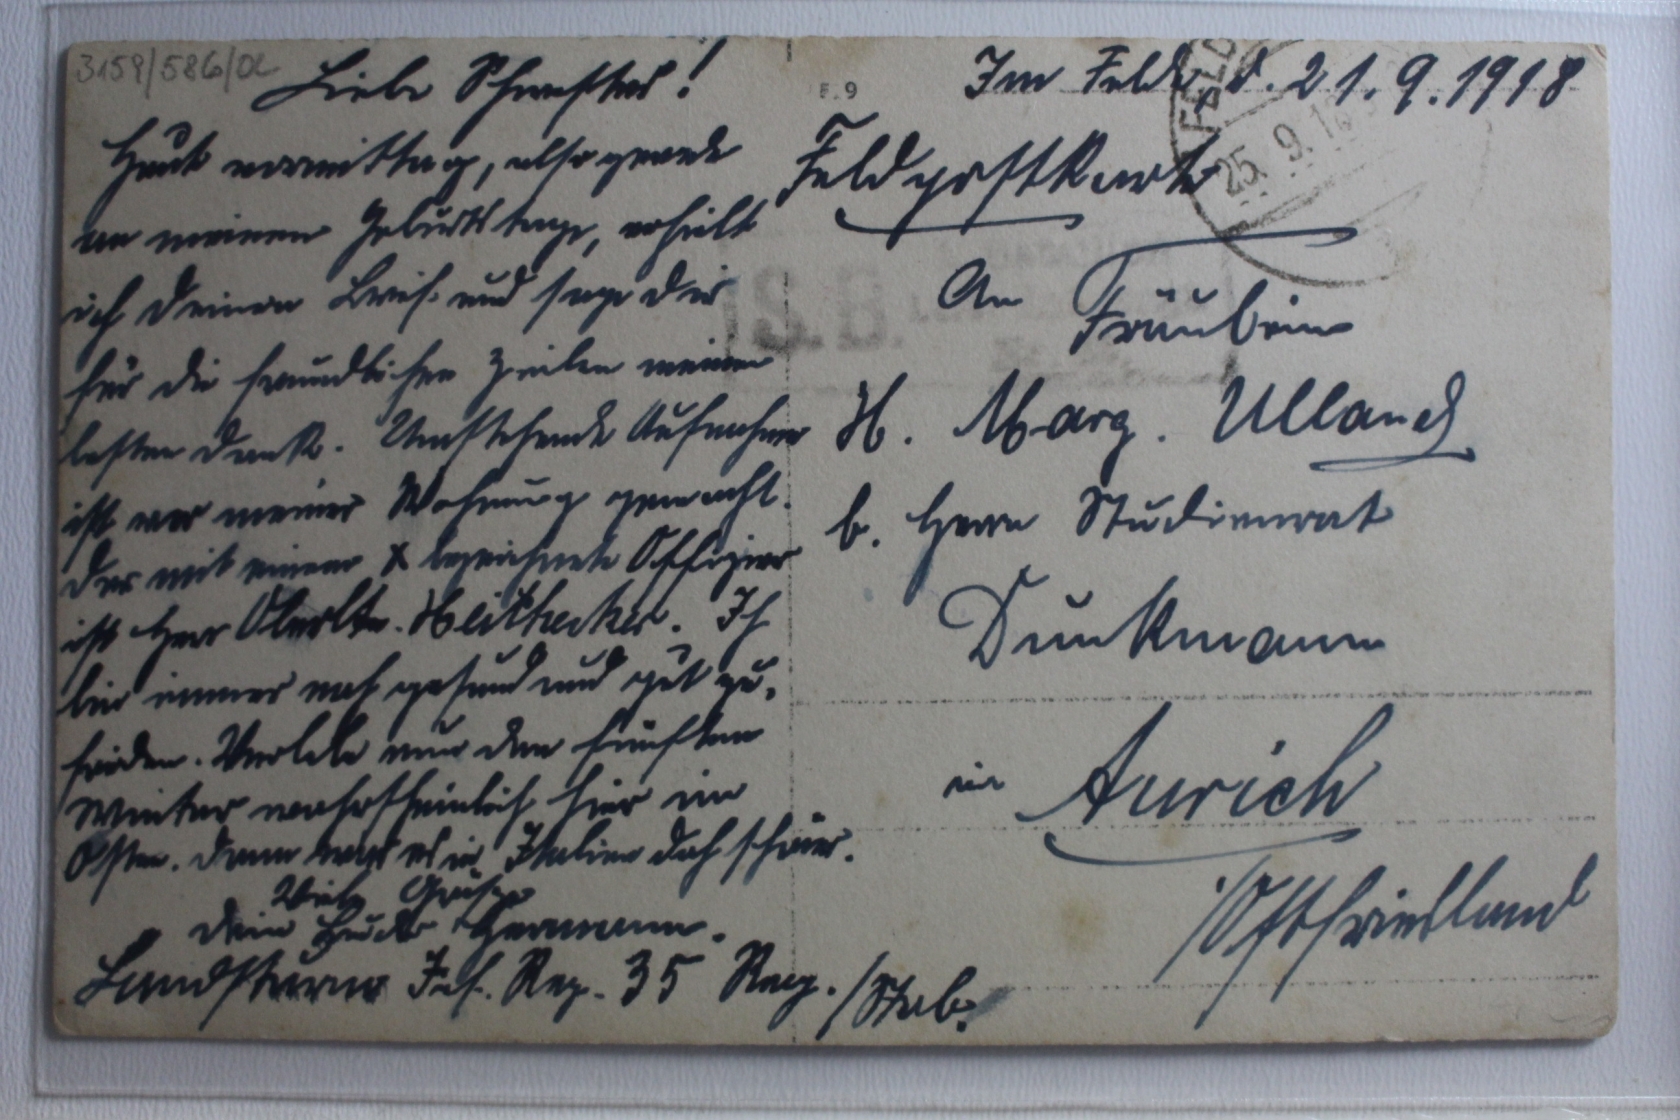 3159/586/OL
Liebe Schwester!
Heute vormittag, also gerade
an meinem Geburtstage, erhielt
ich Deinen Brief und sage Dir
für die freundlichen Zeilen meinen
besten Dank. Umstehende Aufnahme
ist vor meiner Wohnung gemacht.
Der mit einem X bezeichnete Offizier
ist Herr Oberltn. Ich
bin immer noch gesund und gut zu-
frieden. Verlebe nun den fünften
Winter wahrscheinlich hier im
Osten. Dann war es in Italien doch schöner.
Viele Grüße
Dein Bruder Hermann.
Landsturm Inf. Reg. 35 Reg./Stab.
F.9
Im Felde, d. 21.9.1918
Feldpostkarte
25. 9. 18
S.B.
An Fräulein
H. Marg. Ulland
b. Herrn Studienrat
Dunkmann
in Aurich
/Ostfriesland